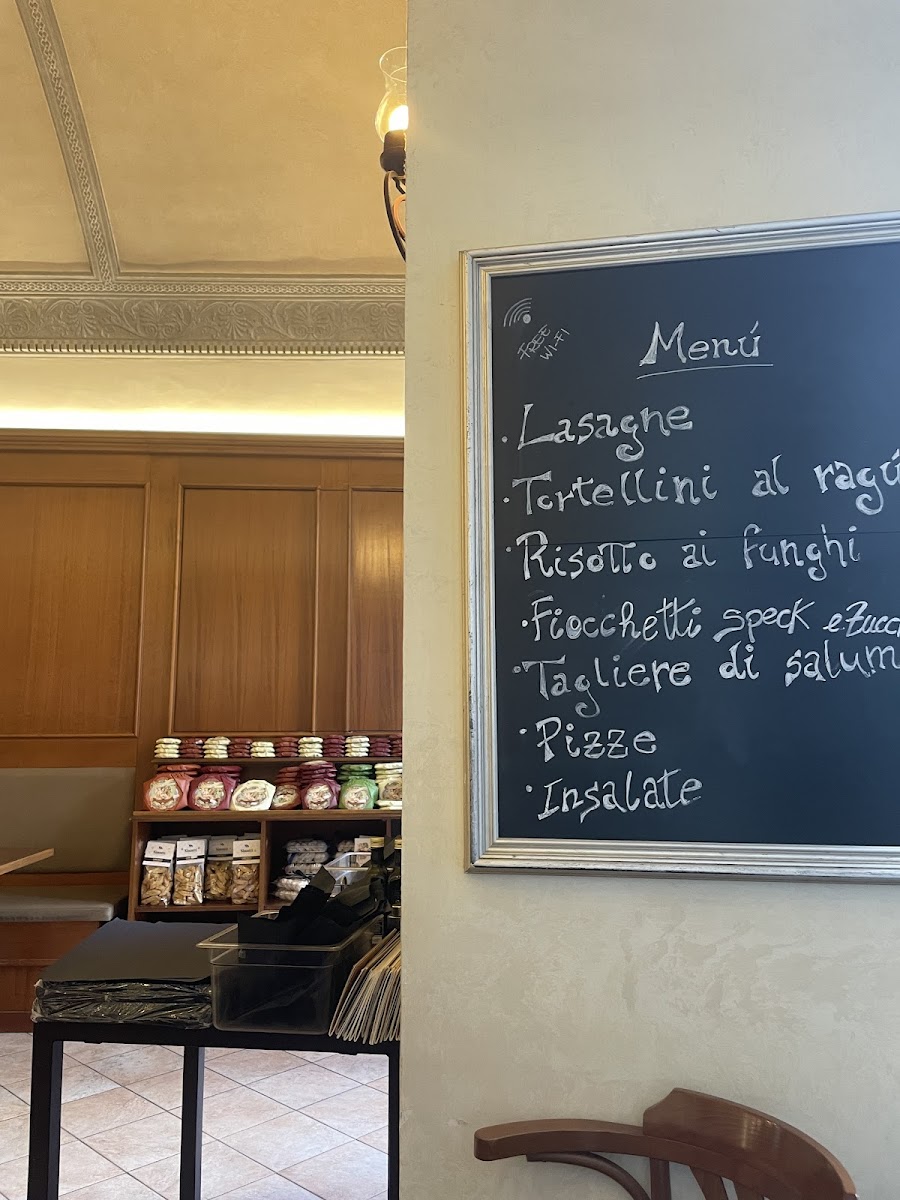 FREE
WI-FI
Menú
· Lasagne
· Tortellini al ragú
· Risotto ai funghi
· Fiocchetti speck e Zucc
· Tagliere di salum
· Pizze
· Insalate